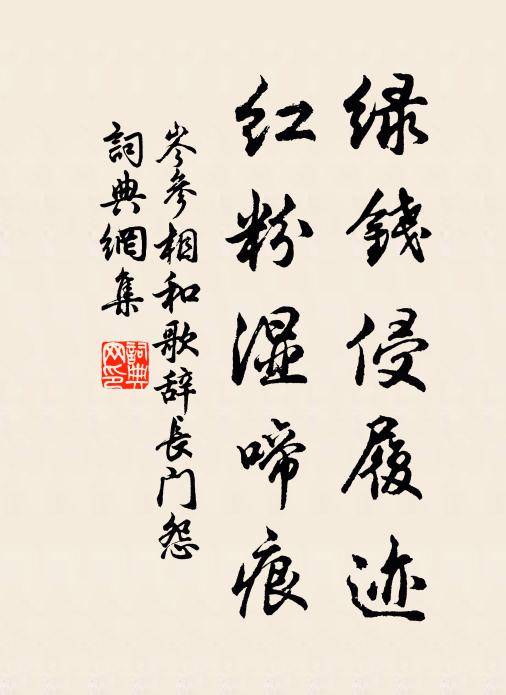 绿錢侵履迹
红粉湿啼痕
岑參相和歌辞長门怨
詞典網集
詞典网印